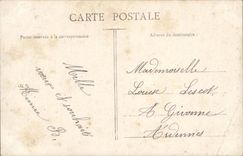 CARTE POSTALE
Partie réservée à la correspondance
Adresse du destinataire
Mille
vœux & souhaits
Mademoiselle
Louise Lescot
A Givonne
Ardennes